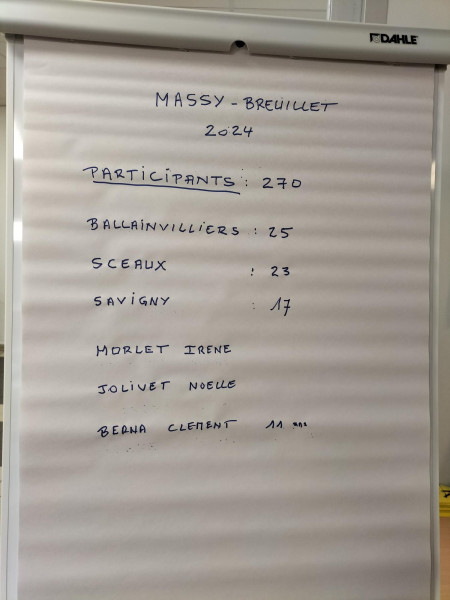 DAHLE
MASSY - BREUILLET
2024
PARTICIPANTS : 270
BALLAINVILLIERS : 25
SCEAUX : 23
SAVIGNY : 17
MORLET IRENE
JOLIVET NOELLE
BERNA CLEMENT 11 ans